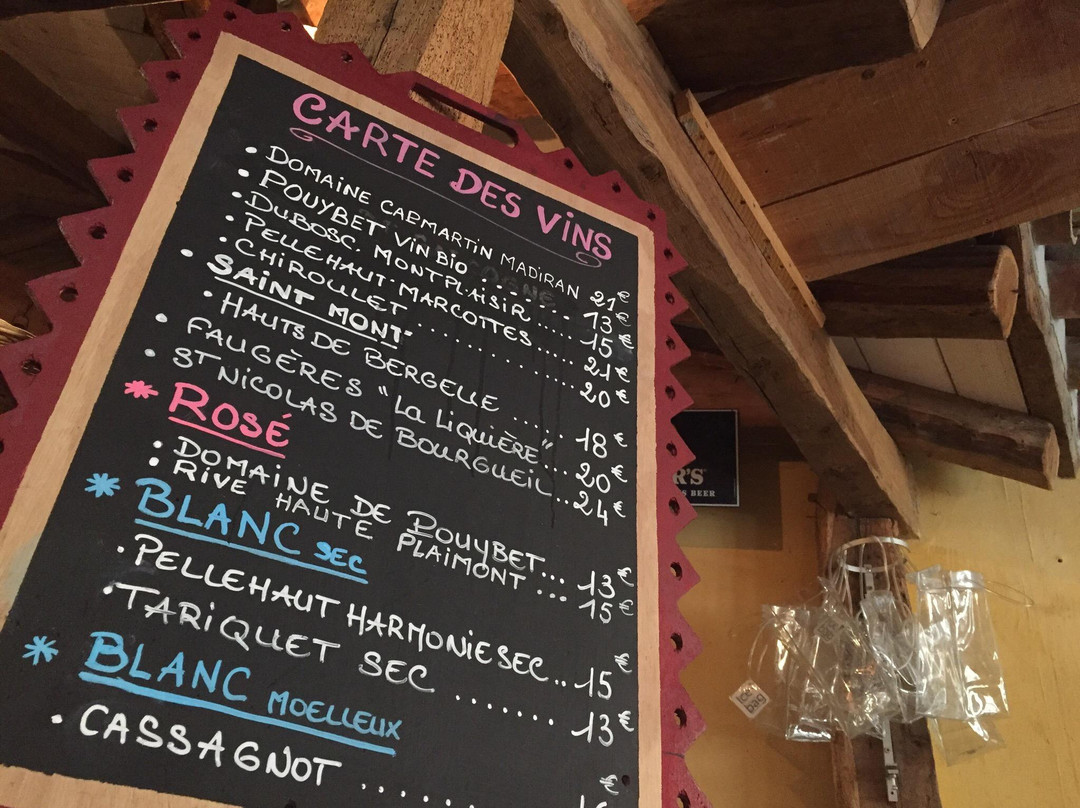 CARTE DES VINS
• DOMAINE CAPMARTIN MADIRAN 21€
• POUYBET VIN BIO ........ 13€
• DUBOSC. MONTPLAISIR ..... 15€
• PELLEHAUT-MARCOTTES ..... 21€
• CHIROULET .............. 20€
• SAINT MONT-
• HAUTS DE BERGELLE ...... 18€
• FAUGÈRES "LA LIQUIÈRE"... 20€
• ST NICOLAS DE BOURGUEIL.. 24€
* ROSÉ
• DOMAINE DE POUYBET... 13€
• RIVE HAUTE PLAIMONT ... 15€
* BLANC SEC
• PELLEHAUT HARMONIE SEC.. 15€
• TARIQUET SEC ....... 13€
* BLANC MOELLEUX
• CASSAGNOT ........ €
R'S
BEER